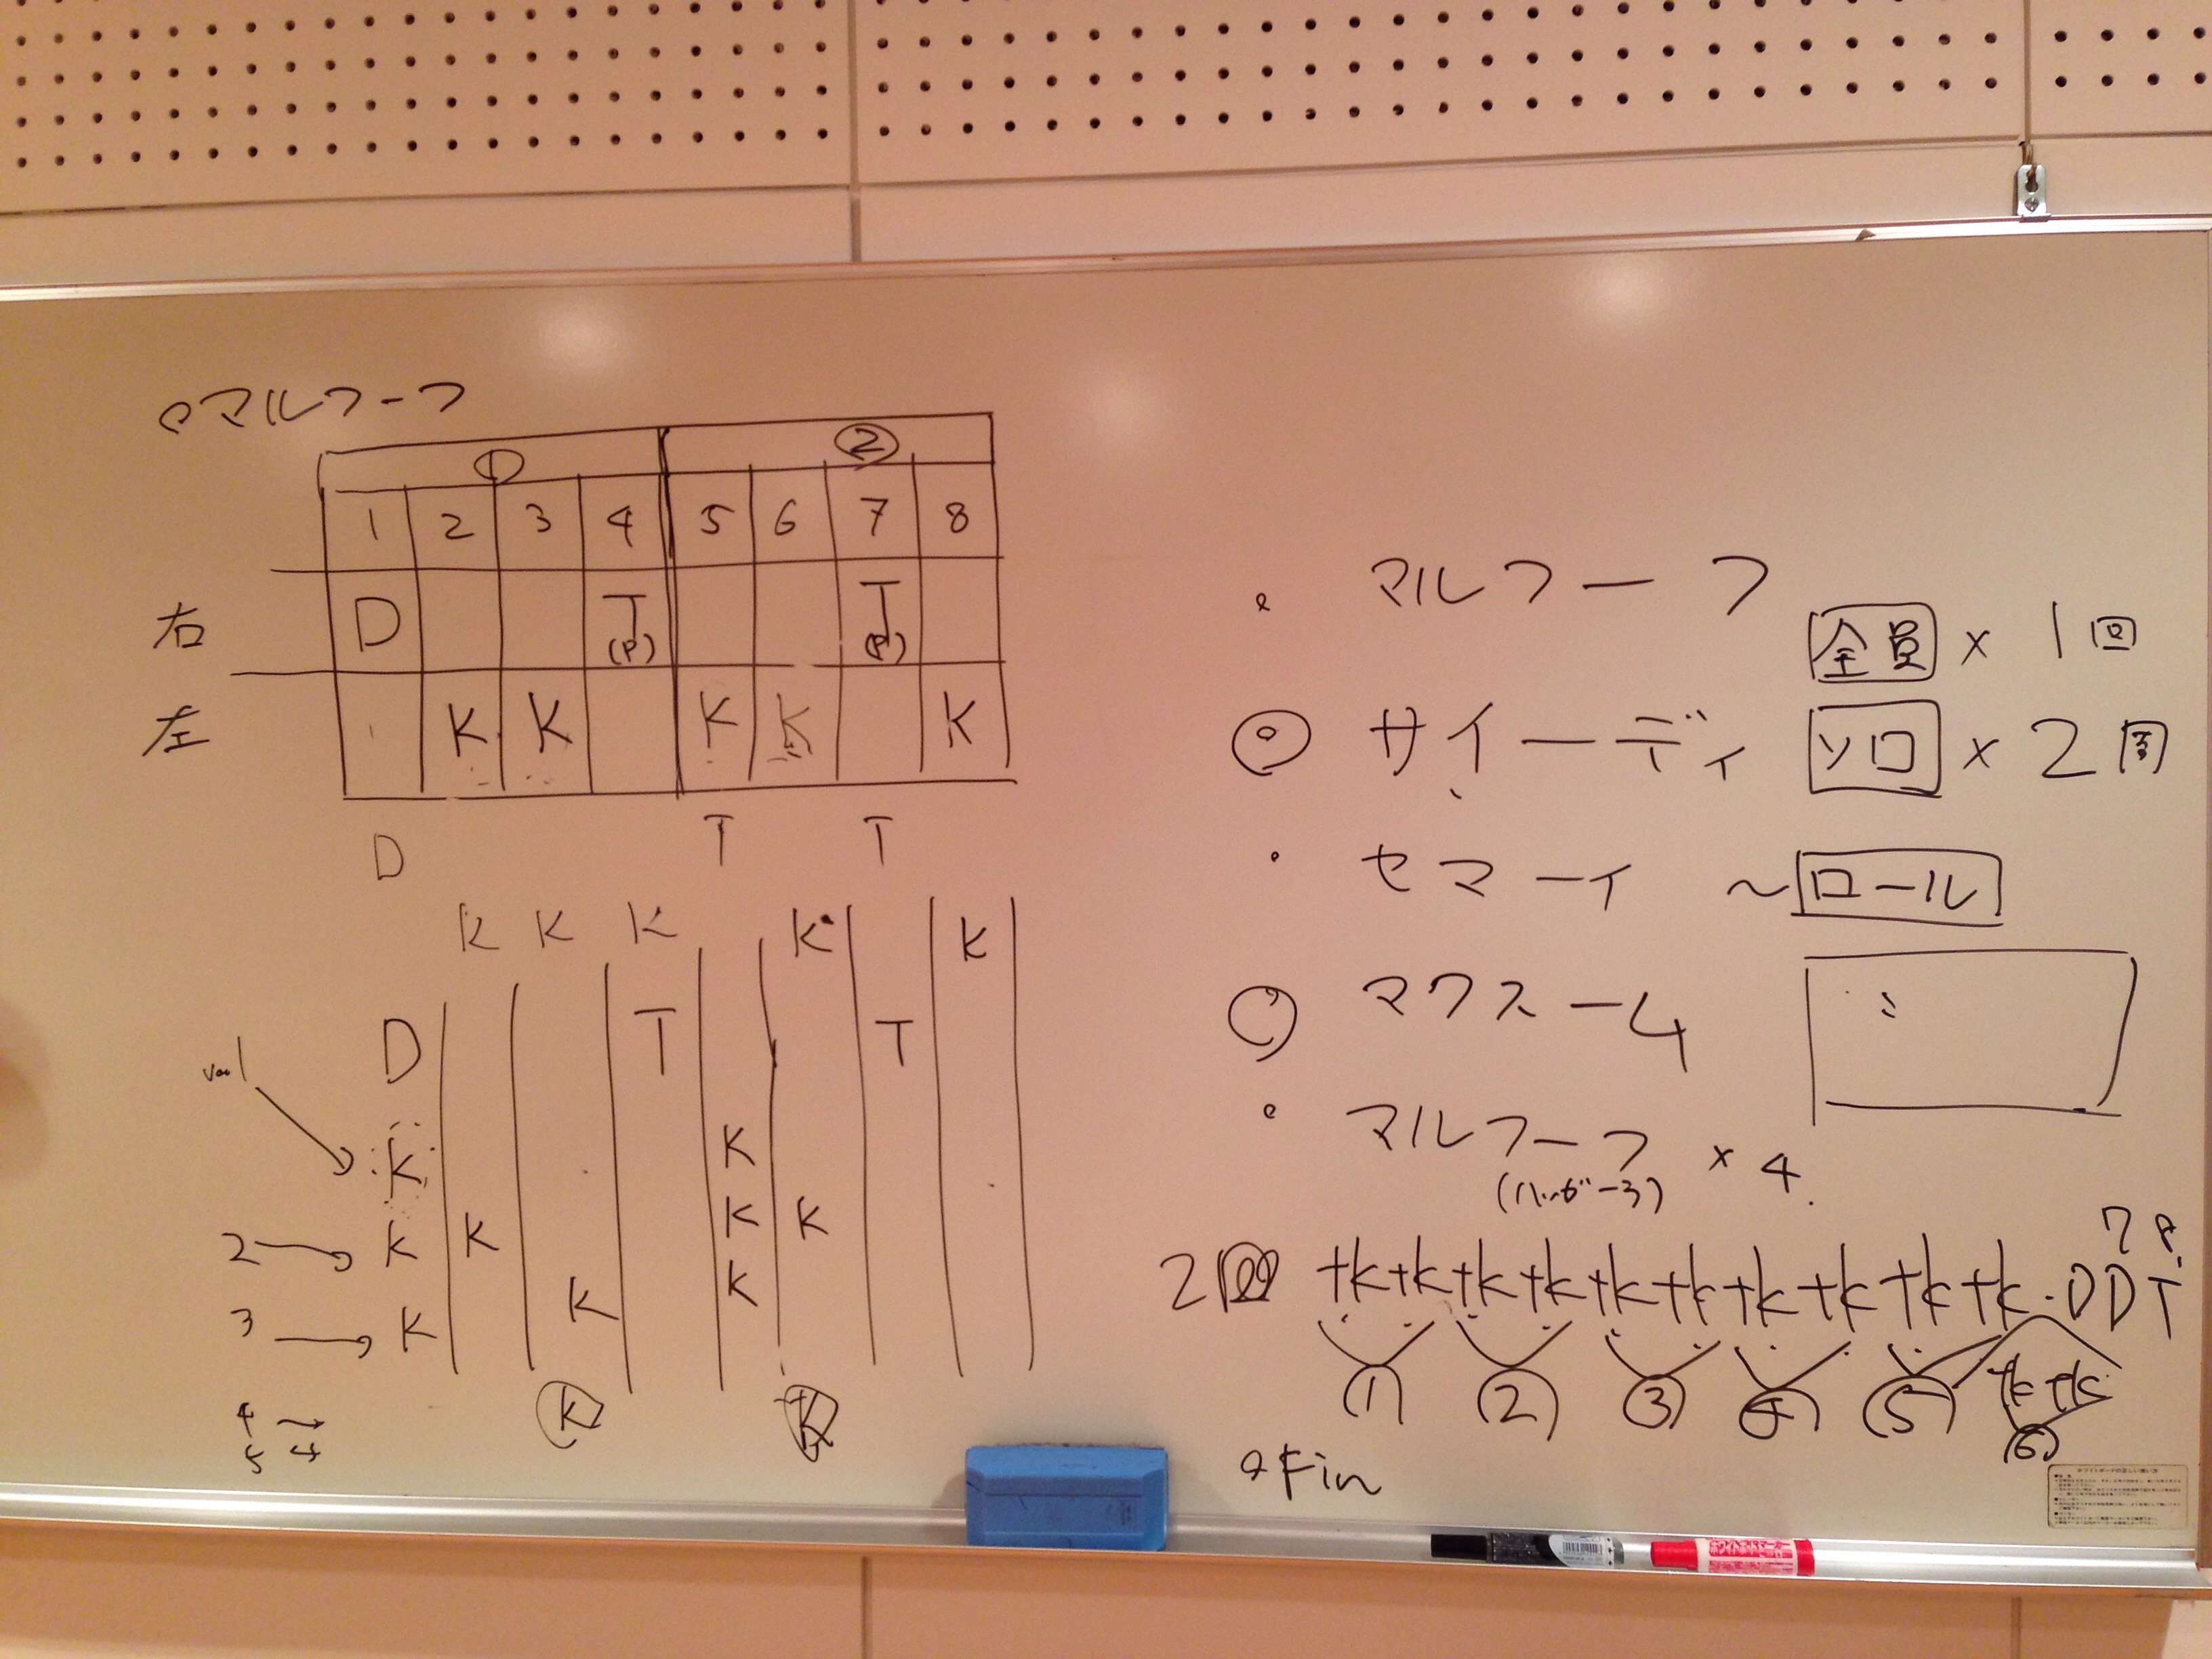 マルフーフ
① ②
1 2 3 4 5 6 7 8
右 D T (P) T (P)
左 K K K K K
D T T
K K K K K
D T T
K K
2 K K K K
3 K K K
K
4
5 4
マルフーフ 全員 × 1回
サイーディ ソロ × 2周
セマーイ ~ ロール
マクスーム
マルフーフ × 4
2回 tk tk tk tk tk tk tk tk tk tk D D T
7 8
① ② ③ ④ ⑤ tk tk
⑥
Fin